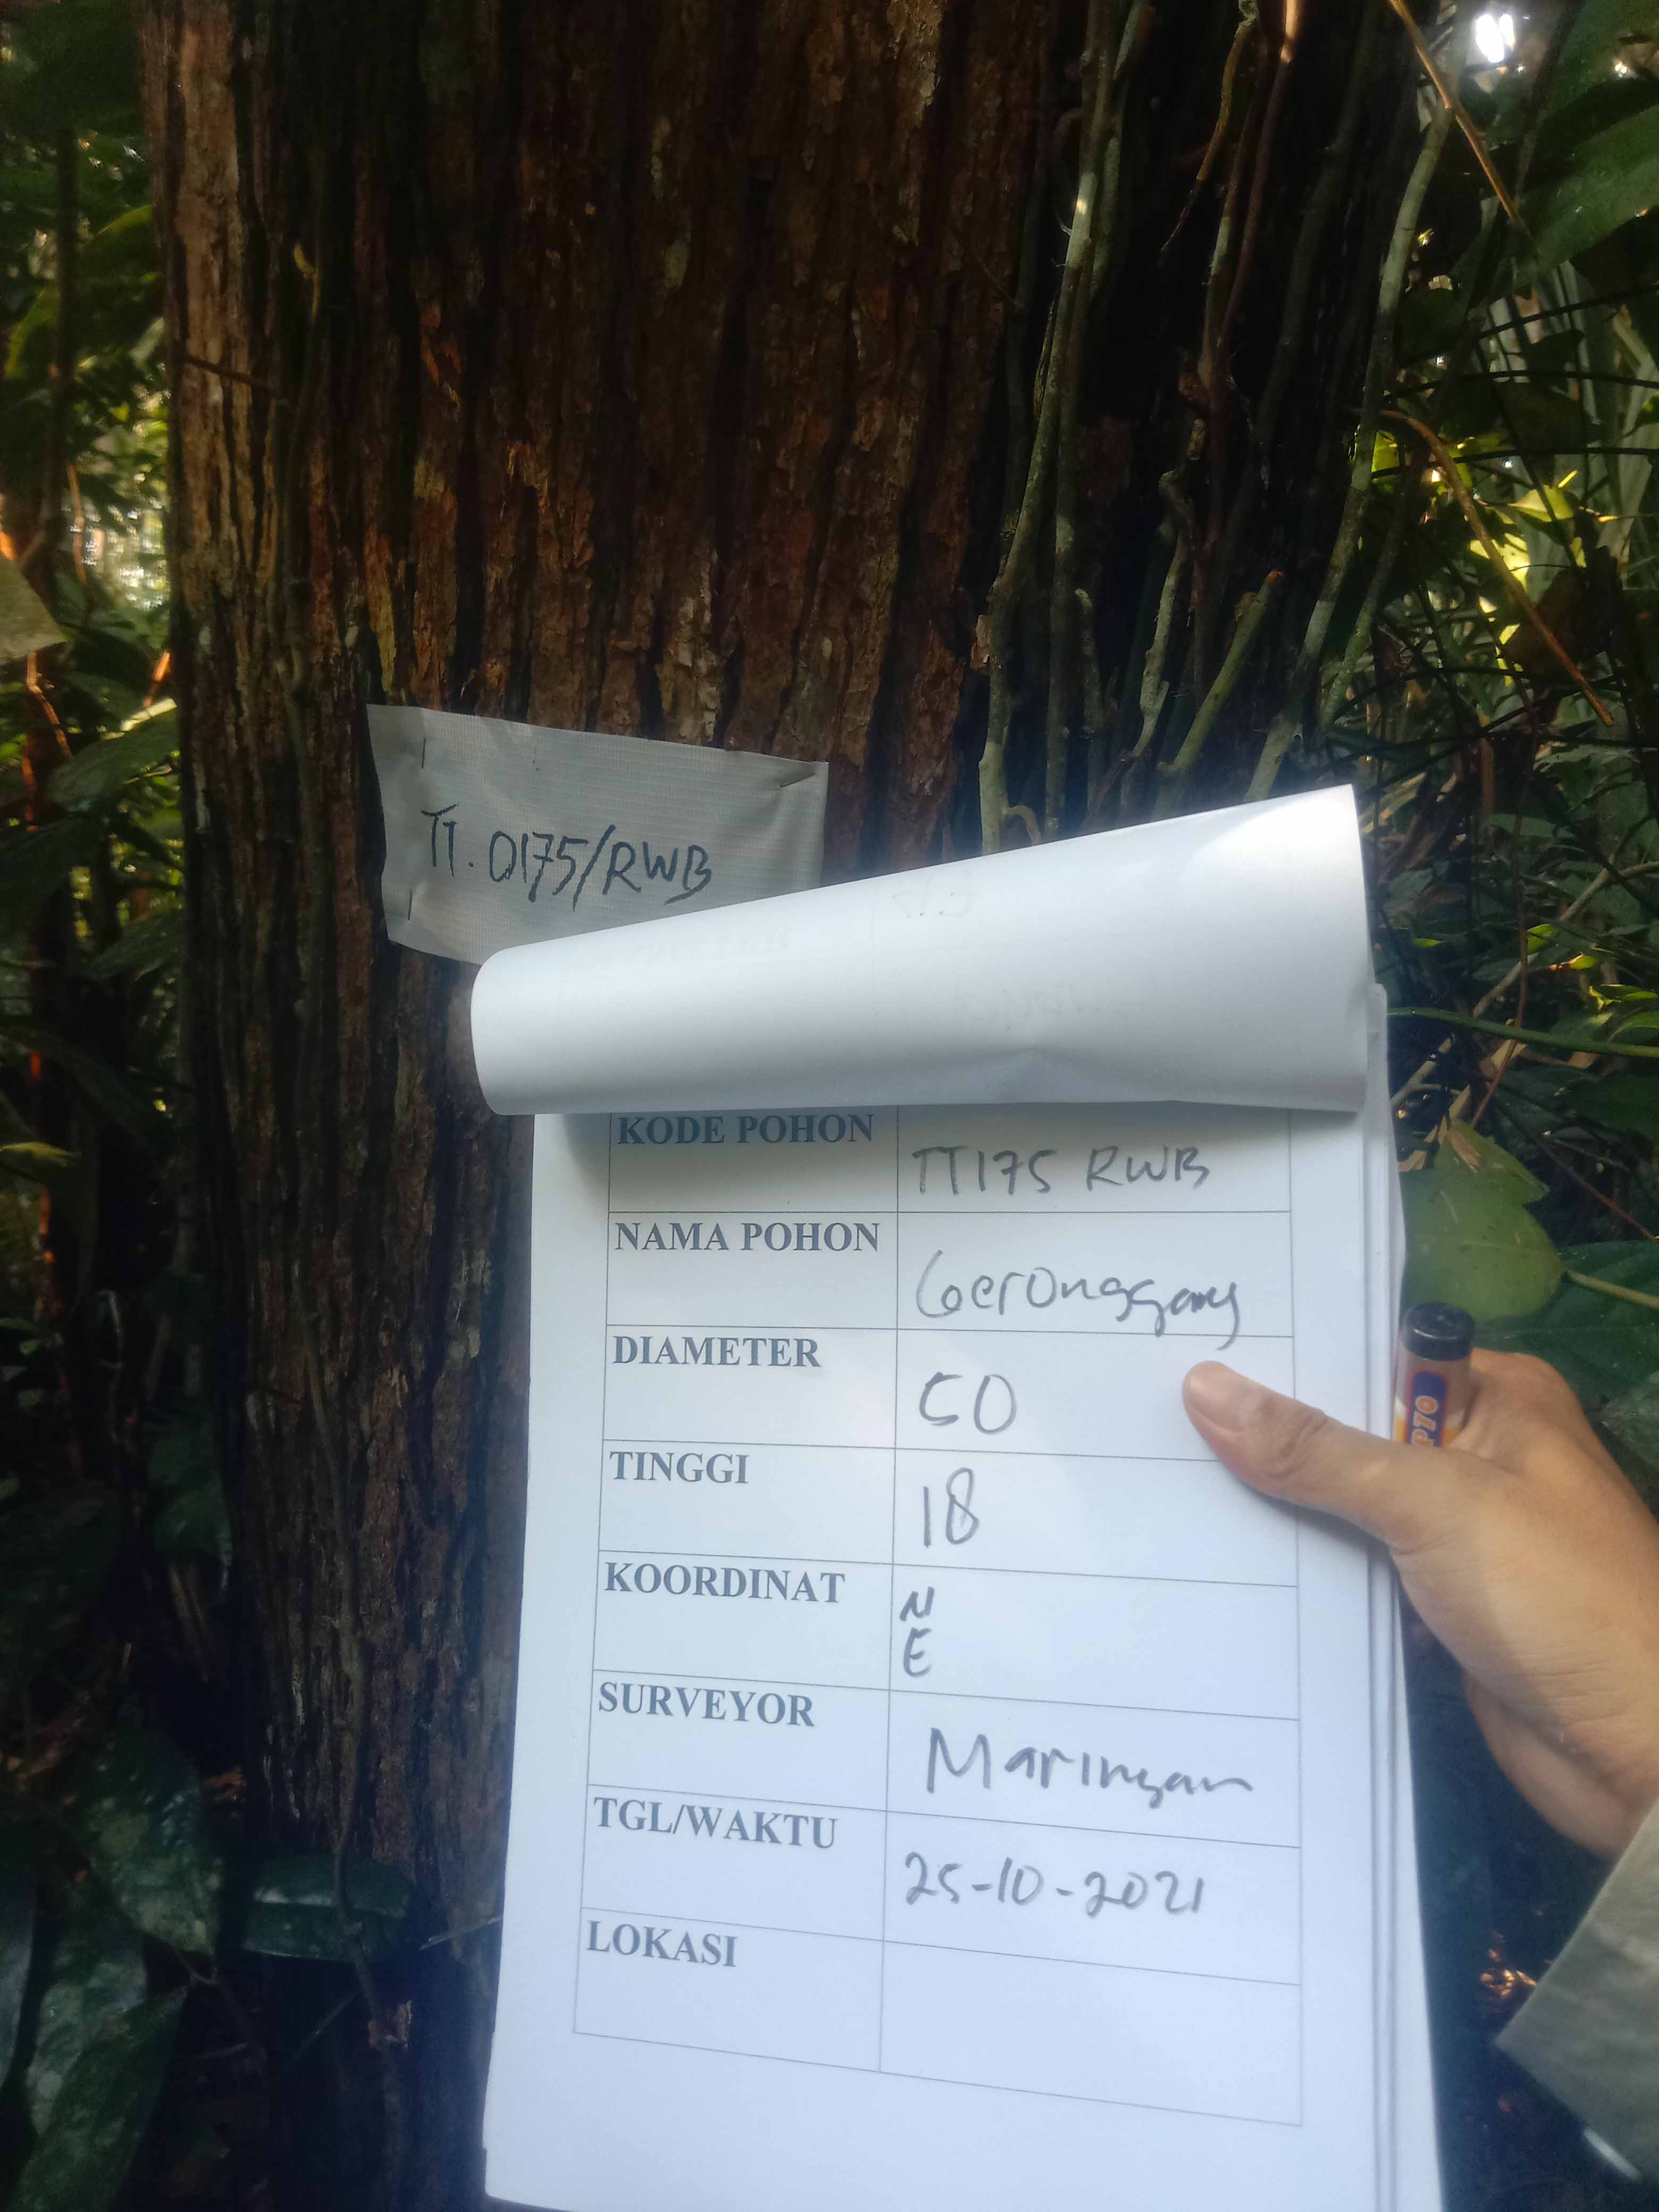 TT.0175/RWB
KODE POHON
TT175 RWB
NAMA POHON
Geronggang
DIAMETER
50
TINGGI
18
KOORDINAT
N
E
SURVEYOR
Maringan
TGL/WAKTU
25-10-2021
LOKASI
P70